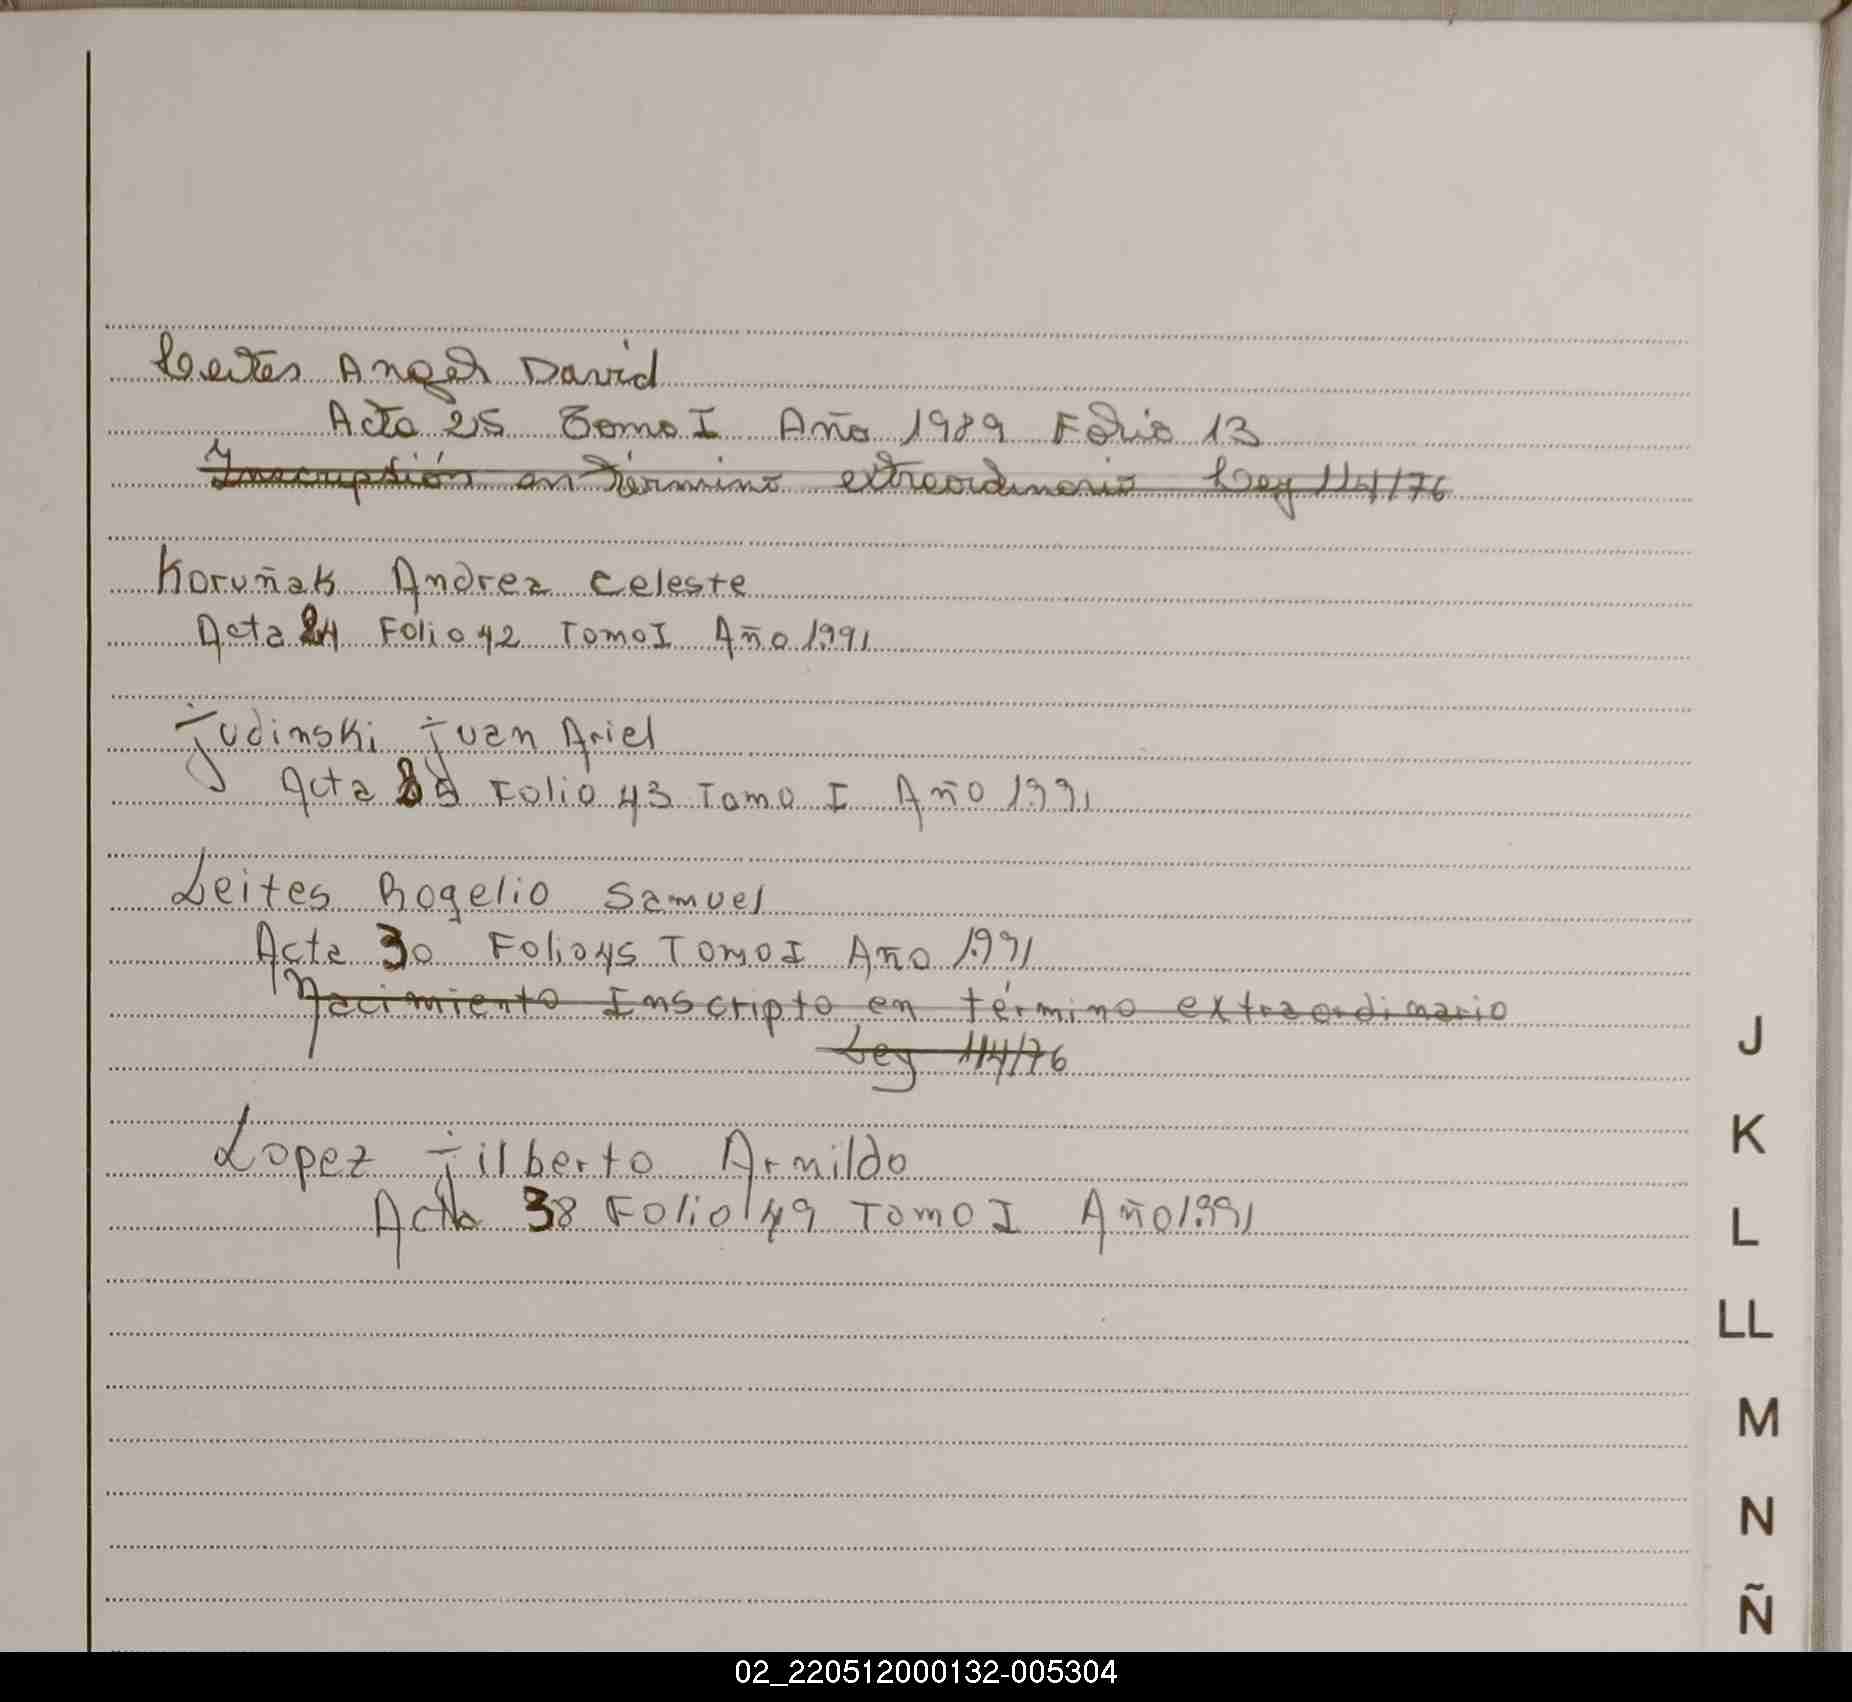 Leites Angel David
Acta 25 Tomo I Año 1989 Folio 13
Inscripsión en término extraordinario Ley 114/76
Koruñak Andrea Celeste
Acta 24 Folio 42 Tomo I Año 1991
judinski juan Ariel
Acta 25 Folio 43 Tomo I Año 1991
Leites Rogelio Samuel
Acta 30 Folio 45 Tomo I Año 1991
Nacimiento Inscripto en término extraordinario
Ley 114/76
Lopez jilberto Arnildo
Acta 38 Folio 49 Tomo I Año 1991
J
K
L
LL
M
N
Ñ
02_220512000132-005304